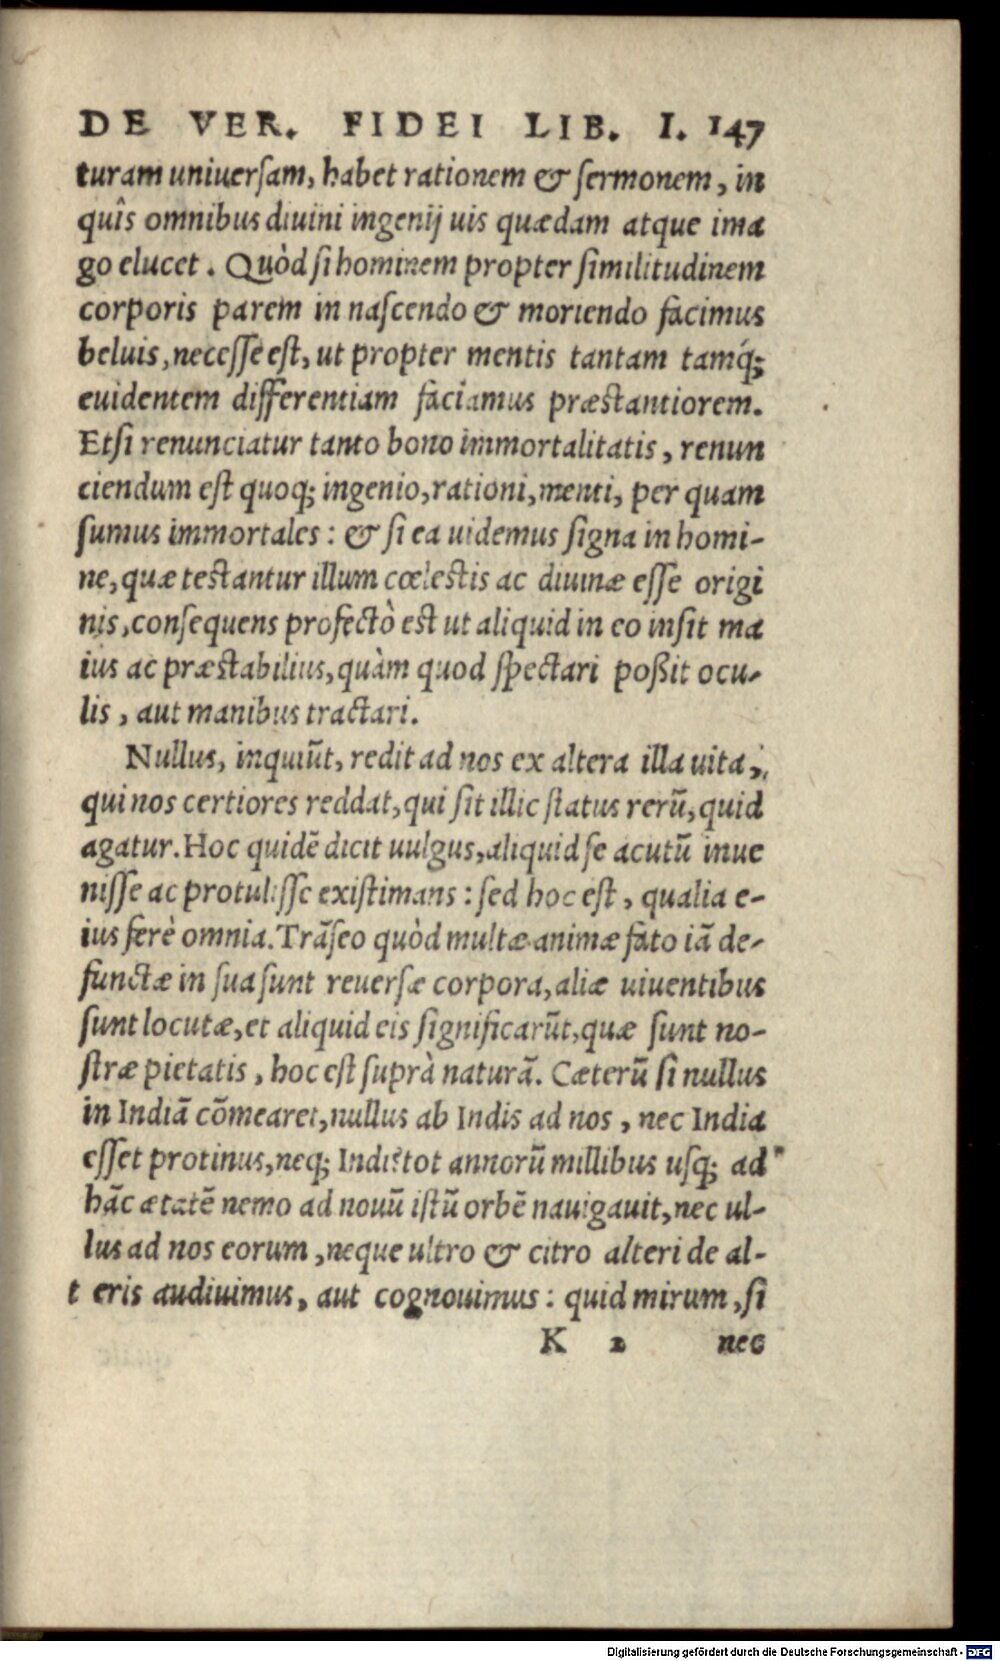 DE VER. FIDEI LIB. I. 147
turam uniuersam, habet rationem & sermonem, in
quîs omnibus diuini ingenij uis quædam atque ima
go elucet. Quòd si hominem propter similitudinem
corporis parem in nascendo & moriendo facimus
beluis, necesse est, ut propter mentis tantam tamq́;
euidentem differentiam faciamus præstantiorem.
Etsi renunciatur tanto bono immortalitatis, renun
ciendum est quoq; ingenio, rationi, menti, per quam
sumus immortales: & si ea uidemus signa in homi-
ne, quæ testantur illum cœlestis ac diuinæ esse origi
nis, consequens profectò est ut aliquid in eo insit ma
ius ac præstabilius, quàm quod spectari poßit ocu-
lis, aut manibus tractari.
Nullus, inquiũt, redit ad nos ex altera illa uita,
qui nos certiores reddat, qui sit illic status rerũ, quid
agatur. Hoc quidẽ dicit uulgus, aliquid se acutũ inue
nisse ac protulisse existimans: sed hoc est, qualia e-
ius ferè omnia. Trãseo quòd multæ animæ fato iã de-
functæ in sua sunt reuersæ corpora, aliæ uiuentibus
sunt locutæ, et aliquid eis significarũt, quæ sunt no-
stræ pietatis, hoc est suprà naturã. Cæterũ si nullus
in Indiã cõmearet, nullus ab Indis ad nos, nec India
esset protinus, neq; Indi? tot annorũ millibus usq; ad
hãc ætatẽ nemo ad nouũ istũ orbẽ nauigauit, nec ul-
lus ad nos eorum, neque ultro & citro alteri de al-
teris audiuimus, aut cognouimus: quid mirum, si
K 2 nec
Digitalisierung gefördert durch die Deutsche Forschungsgemeinschaft - DFG